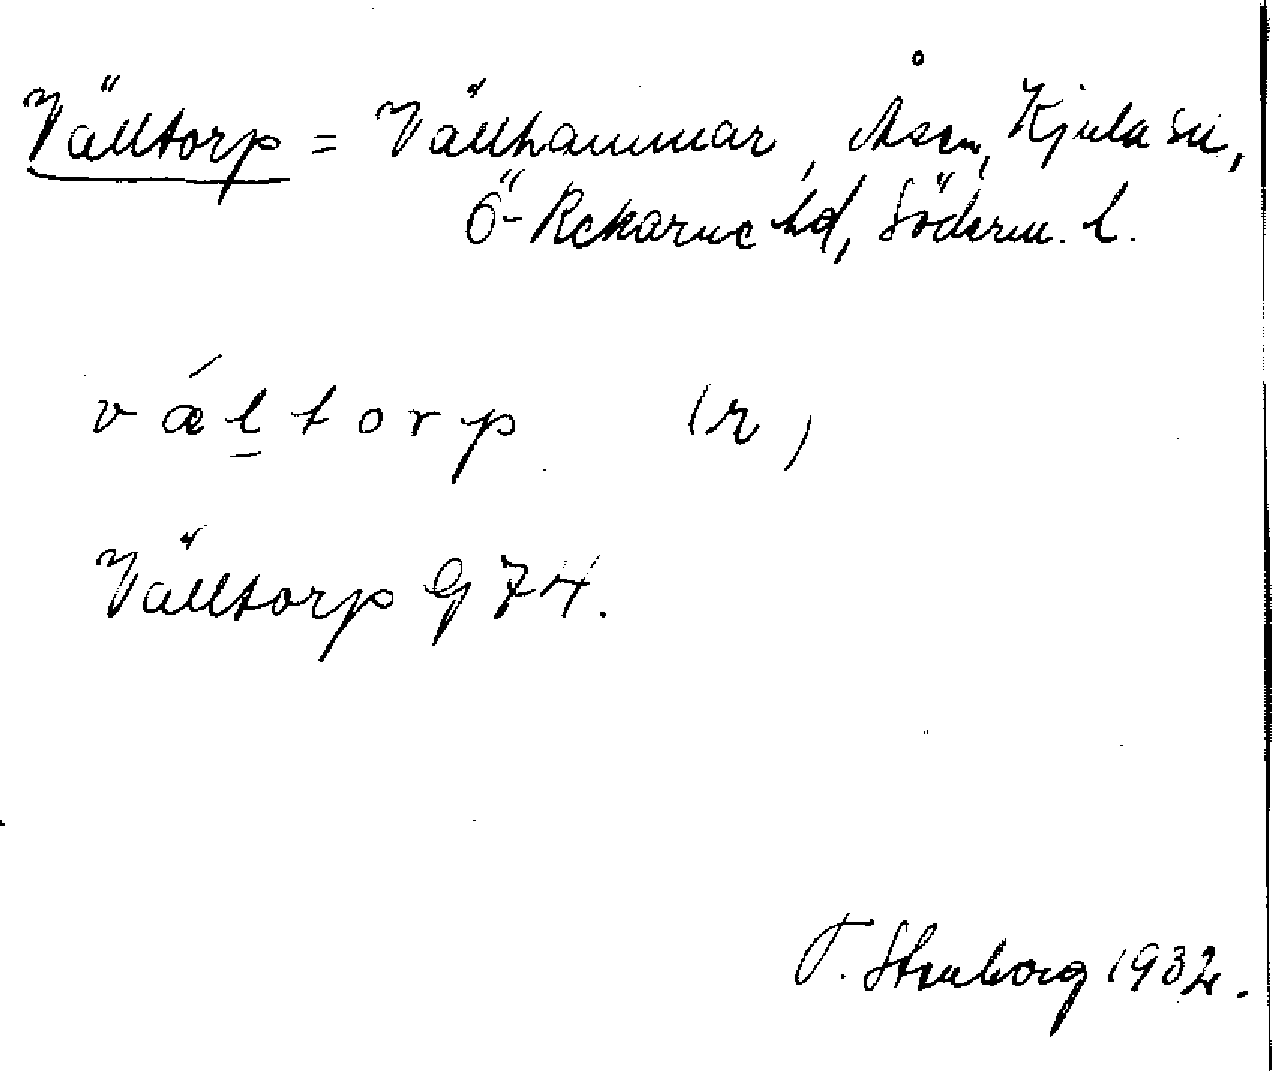 Välltorp = Vällhammar, Åsen, Kjula sn,
Ö-Rekarne hd, Söderm. l.
vǽl̲torp (r)
Välltorp G 74.
T. Stenborg 1932.